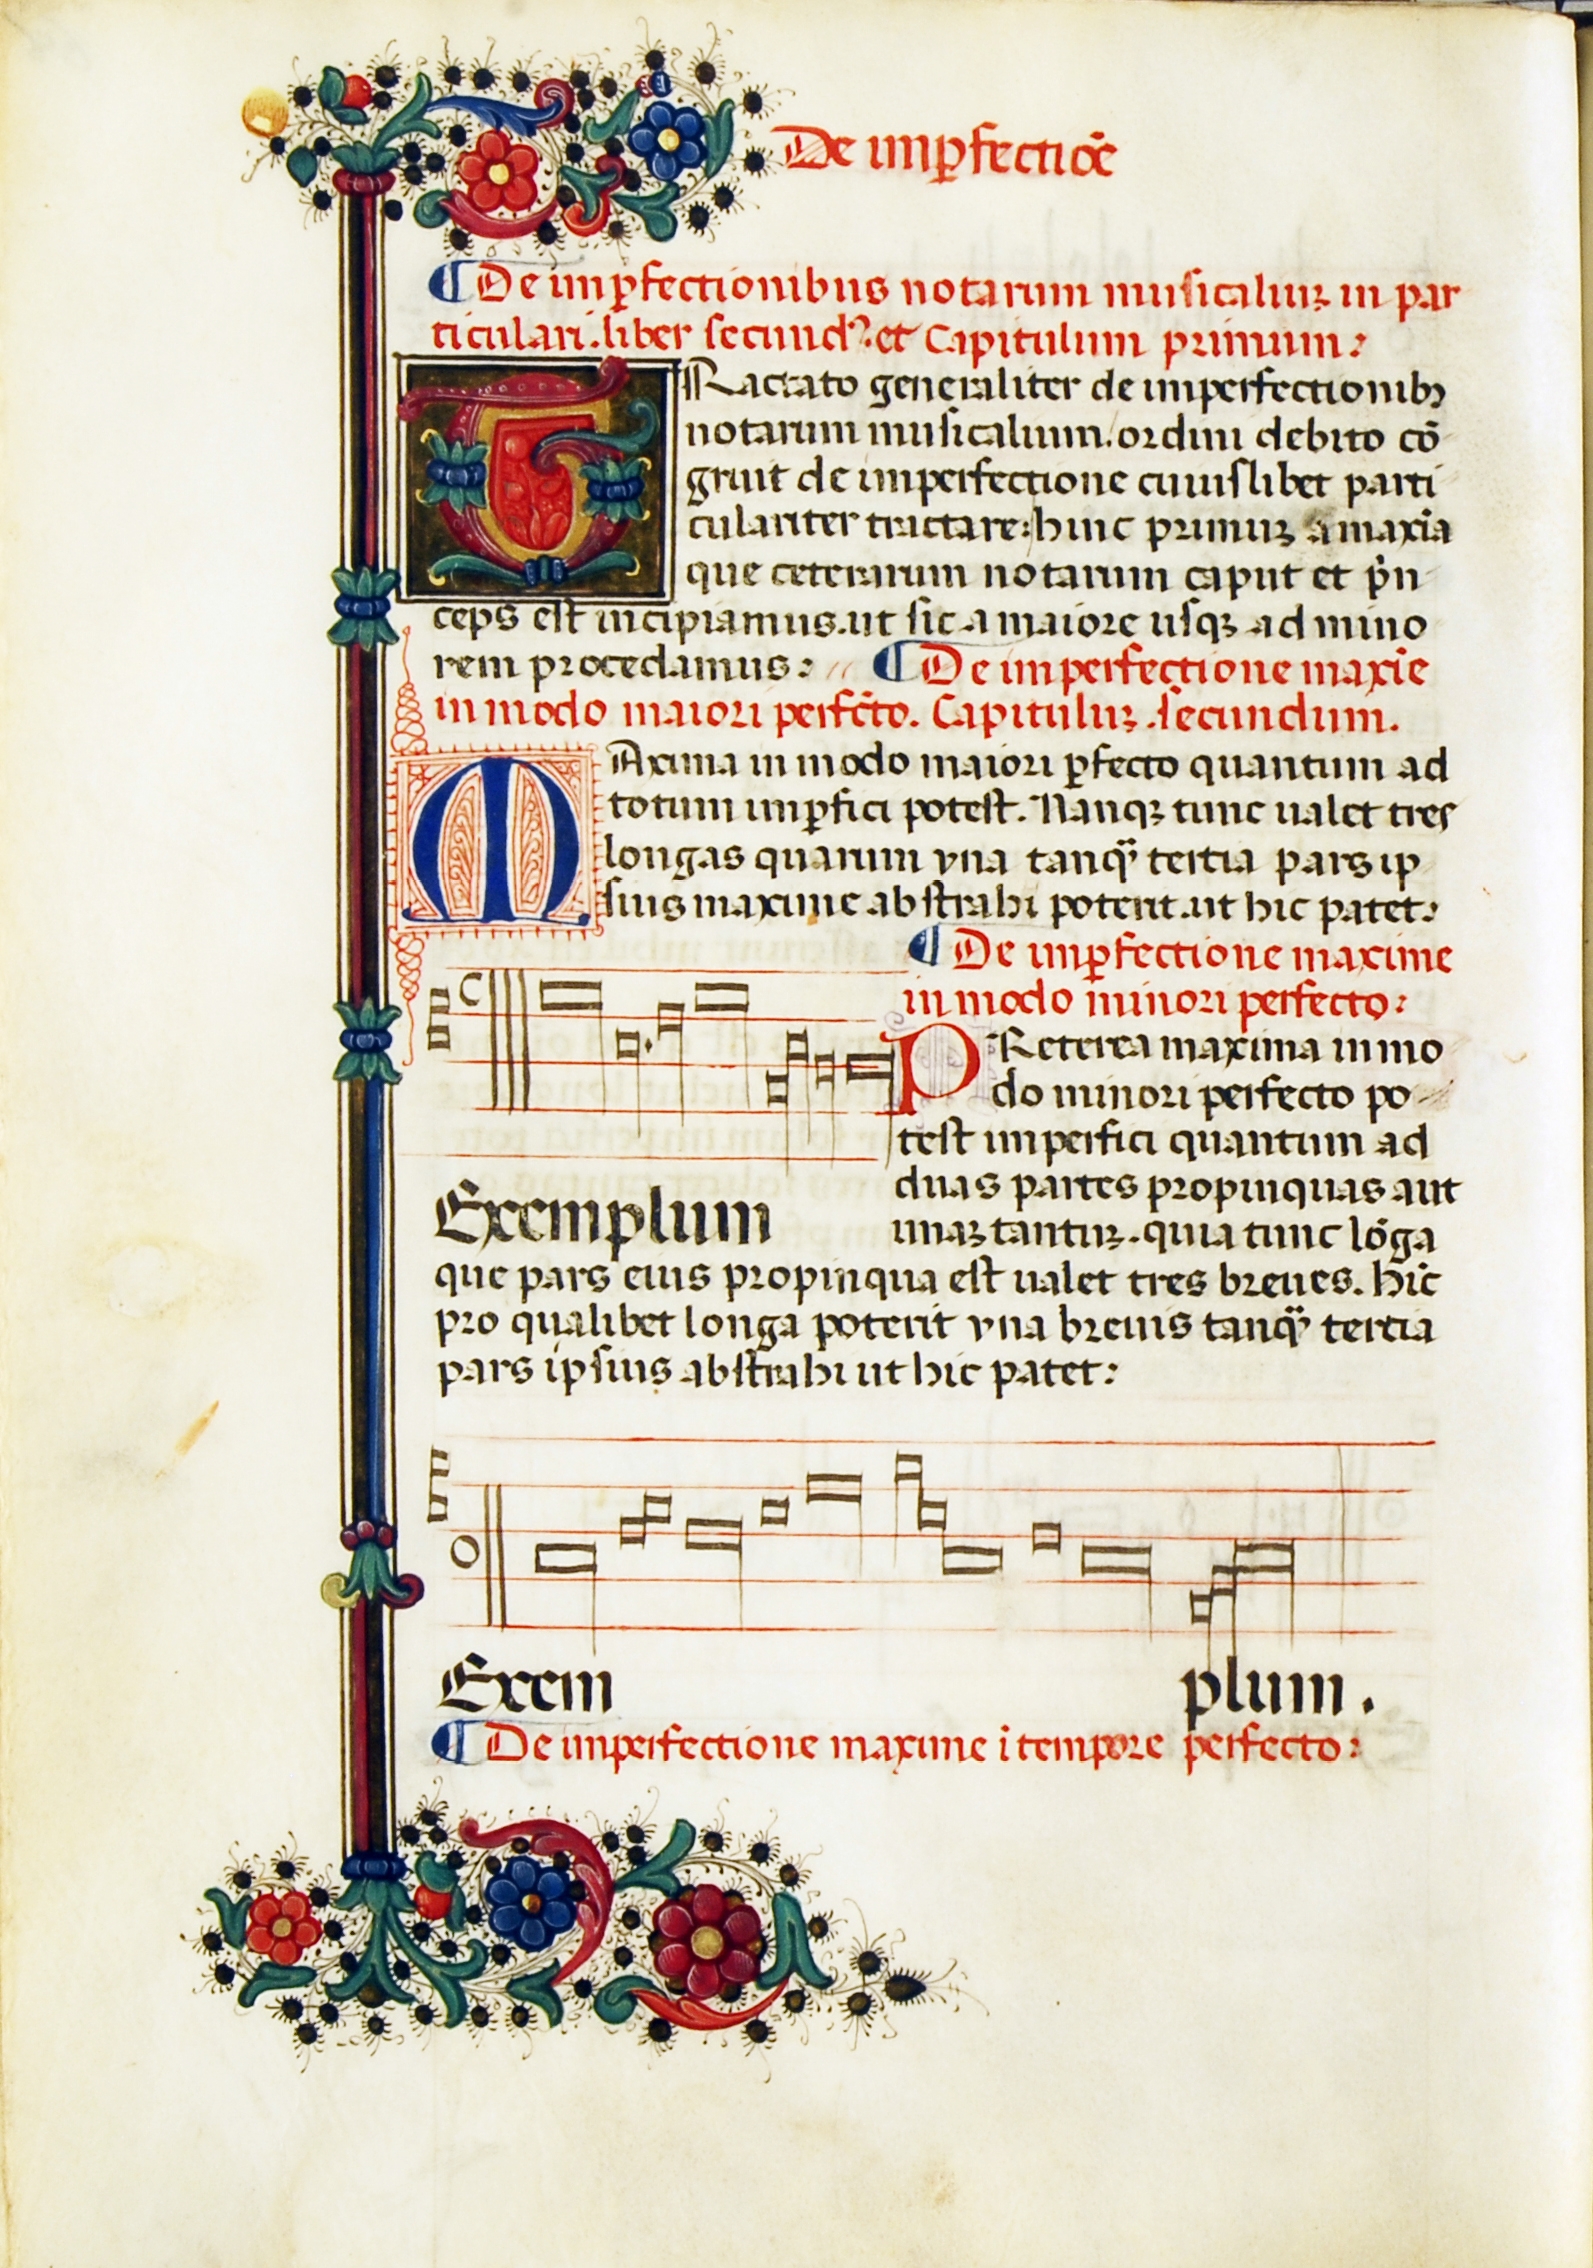 De imp̱fectiōe
¶ De imp̱fectionibus notarum musicaliuꝫ in par
ticulari. liber secundꝰ. et Capitulum primum:
TRactato generaliter de imperfectionibꝫ
notarum musicalium. ordini debito cō
gruit de imperfectione cuiuslibet parti
culariter tractare: hinc primuꝫ a maxīa
que ceterarum notarum caput et p̄n
ceps est incipiamus. ut sic a maiore usqꝫ ad mino
rem procedamus: ¶ De imperfectione maxīe
in modo maiori perfc̄to. Capituluꝫ .secundum.
MAxima in modo maiori ꝑfecto quantum ad
totum imꝑfici potest. Nanqꝫ tunc ualet tres
longas quarum vna tanq̈ tertia pars ip
sius maxime abstrahi poterit. ut hic patet:
¶ De imꝑfectione maxime
in modo minori perfecto:
C
PReterea maxima in mo
do minori perfecto po
test imperfici quantum ad
duas partes propinquas aut
Exemplum
unaꝫ tantuꝫ. quia tunc lōga
que pars eius propinqua est ualet tres breues. Hic̄
pro qualibet longa poterit vna breuis tanq̈ tertia
pars ipsius abstrahi ut hic patet:
O
Exem plum.
¶ De imperfectione maxime ī tempore perfecto: